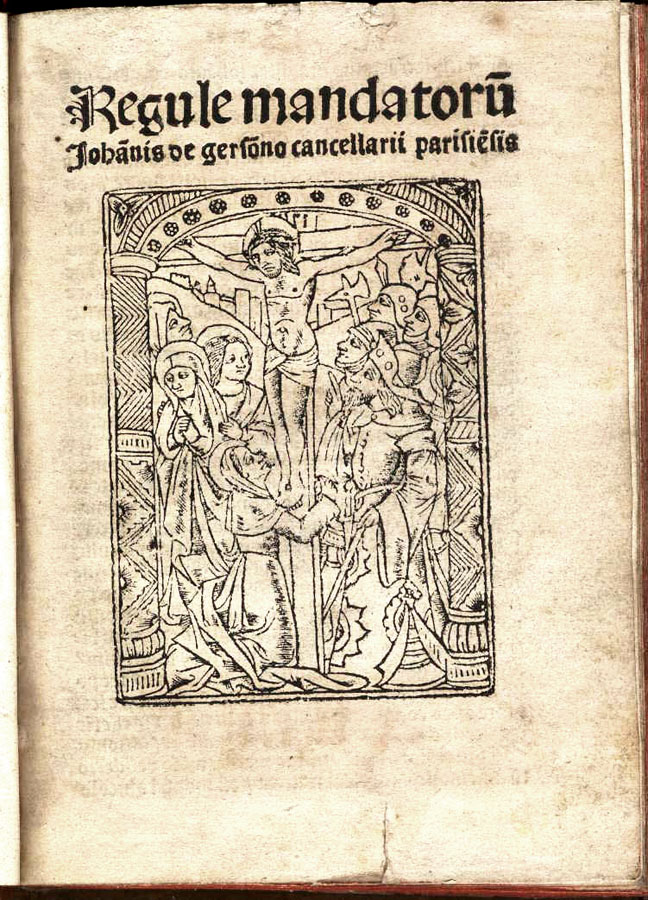 Regule mandatorū
Johānis de gersōno cancellarii parisiēsis